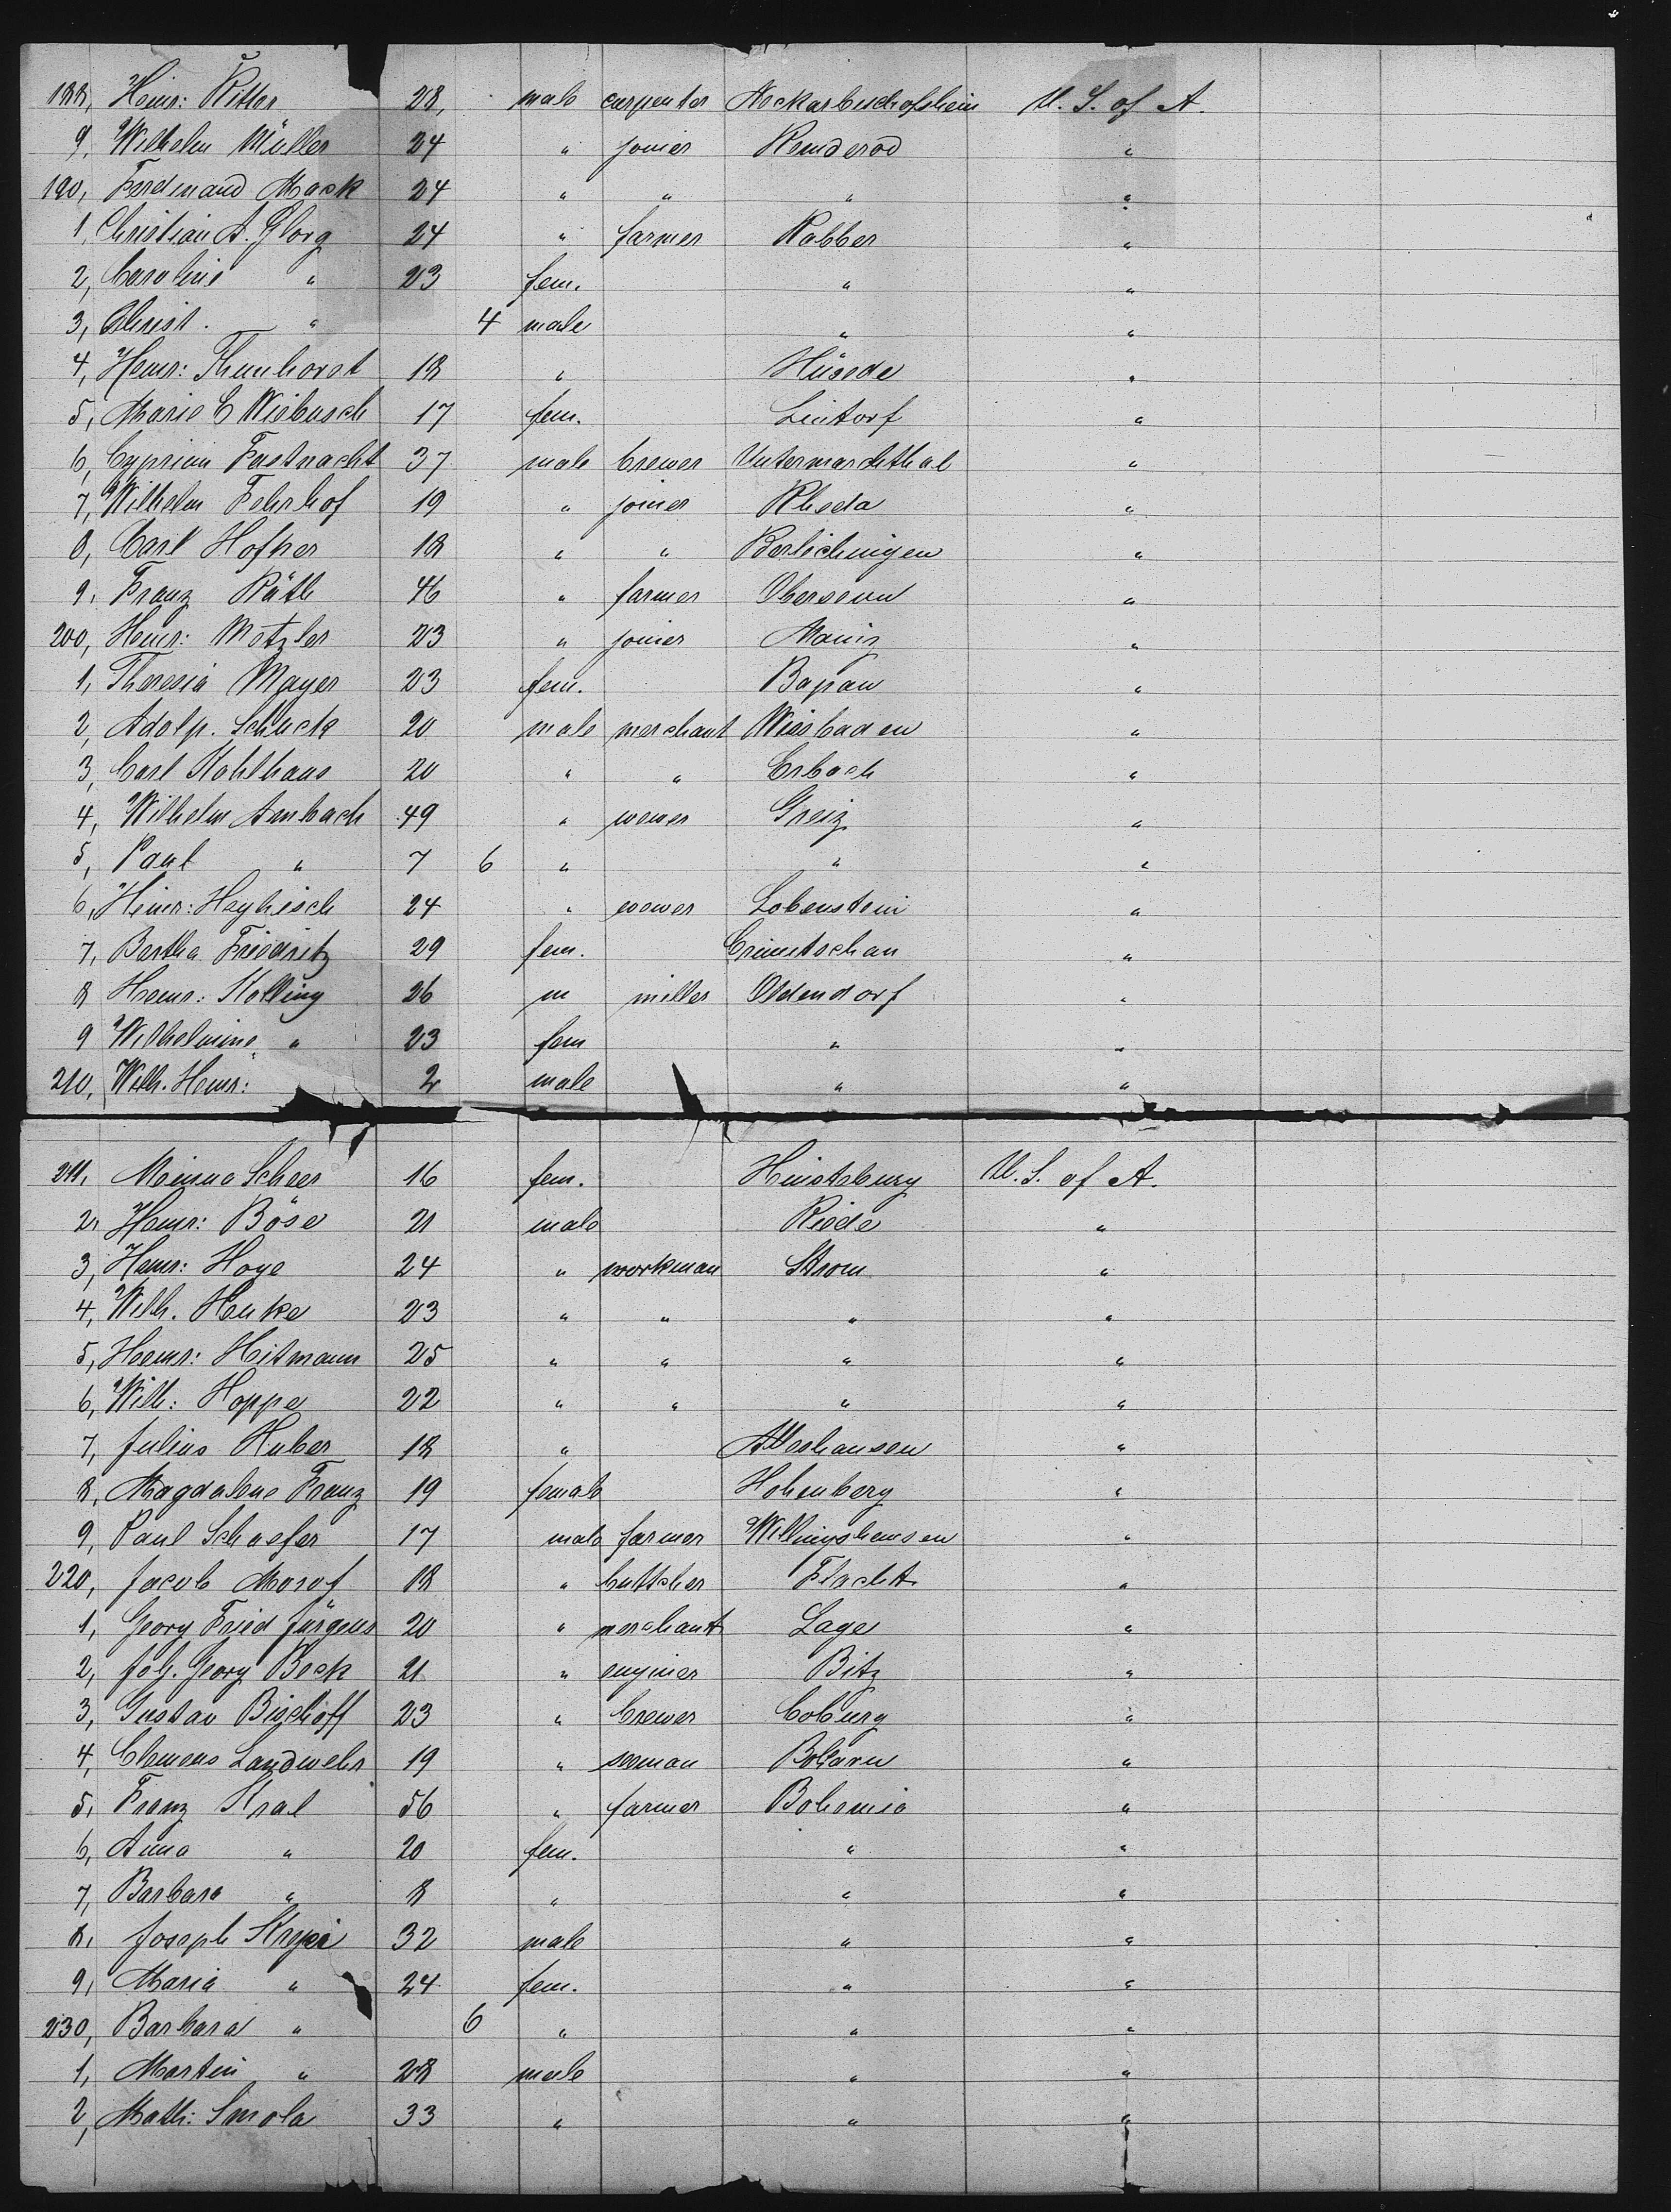 188, Heinr: Ritter 28, male carpenter Neckarbischofsheim U. S. of A.
9, Wilhelm Müller 24 " joiner Renderod "
190, Ferdinand Mack 24 " " " "
1, Christian A. Glorg 24 " farmer Rabber "
2, Caroline " 23 fem. " "
3, Christ. " 4 male " "
4, Heinr: Thunhorst 18 " Hüsede "
5, Marie C Wiebusch 17 fem. Lintorf "
6, Cyprian Fastnacht 37 male brewer Untermarchthal "
7, Wilhelm Fehrhof 19 " joiner Rheda "
8, Carl Hofner 18 " " Berlichingen "
9, Franz Räth 46 " farmer Obersevn "
200, Heinr: Metzler 23 " joiner Mainz "
1, Theresia Mayer 23 fem. Bopau "
2, Adolp. Schuck 20 male merchant Wiesbaden "
3, Carl Kohlhaus 20 " " Erbach "
4, Wilhelm Ambach 49 " wewer Greiz "
5, Paul " 7 6 " " "
6, Heinr: Heyhisch 24 " wewer Lobenstein "
7, Bertha Friedritz 29 fem. Crimitschau "
8 Heinr: Kolling 26 m miller Oldendorf "
9 Wilhelmine " 23 fem " "
210, Wilh. Heinr: 2 male " "
211, Meinna Scheer 16 fem. Hinsteburg U. S. of A.
2, Heinr: Böse 21 male Riede "
3, Heinr: Hoye 24 " workman Strom "
4, Wilh. Henke 23 " " " "
5, Heinr: Hitmann 25 " " " "
6, Wilh: Hoppe 22 " " " "
7, Julius Huber 18 " Alleshausen "
8, Magdalene Franz 19 female Hohenberg "
9, Paul Schaefer 17 male farmer Willingshausen "
220, Jacob Morof 18 " buttcher Flacht "
1, Georg Fried Jürgens 20 " merchant Lage "
2, Joh. Georg Beck 21 " enginer Bitz "
3, Gustav Bischoff 23 " brewer Coburg "
4, Clemens Landwehr 19 " seeman "
5, Franz Kral 56 " farmer Bohemia "
6, Anna " 20 fem. " "
7, Barbara " 8 " " "
8, Joseph Krejci 32 male " "
9, Maria " 24 fem. " "
230, Barbara " 6 " " "
1, Martin " 28 male " "
2, Math: Smola 33 " " "